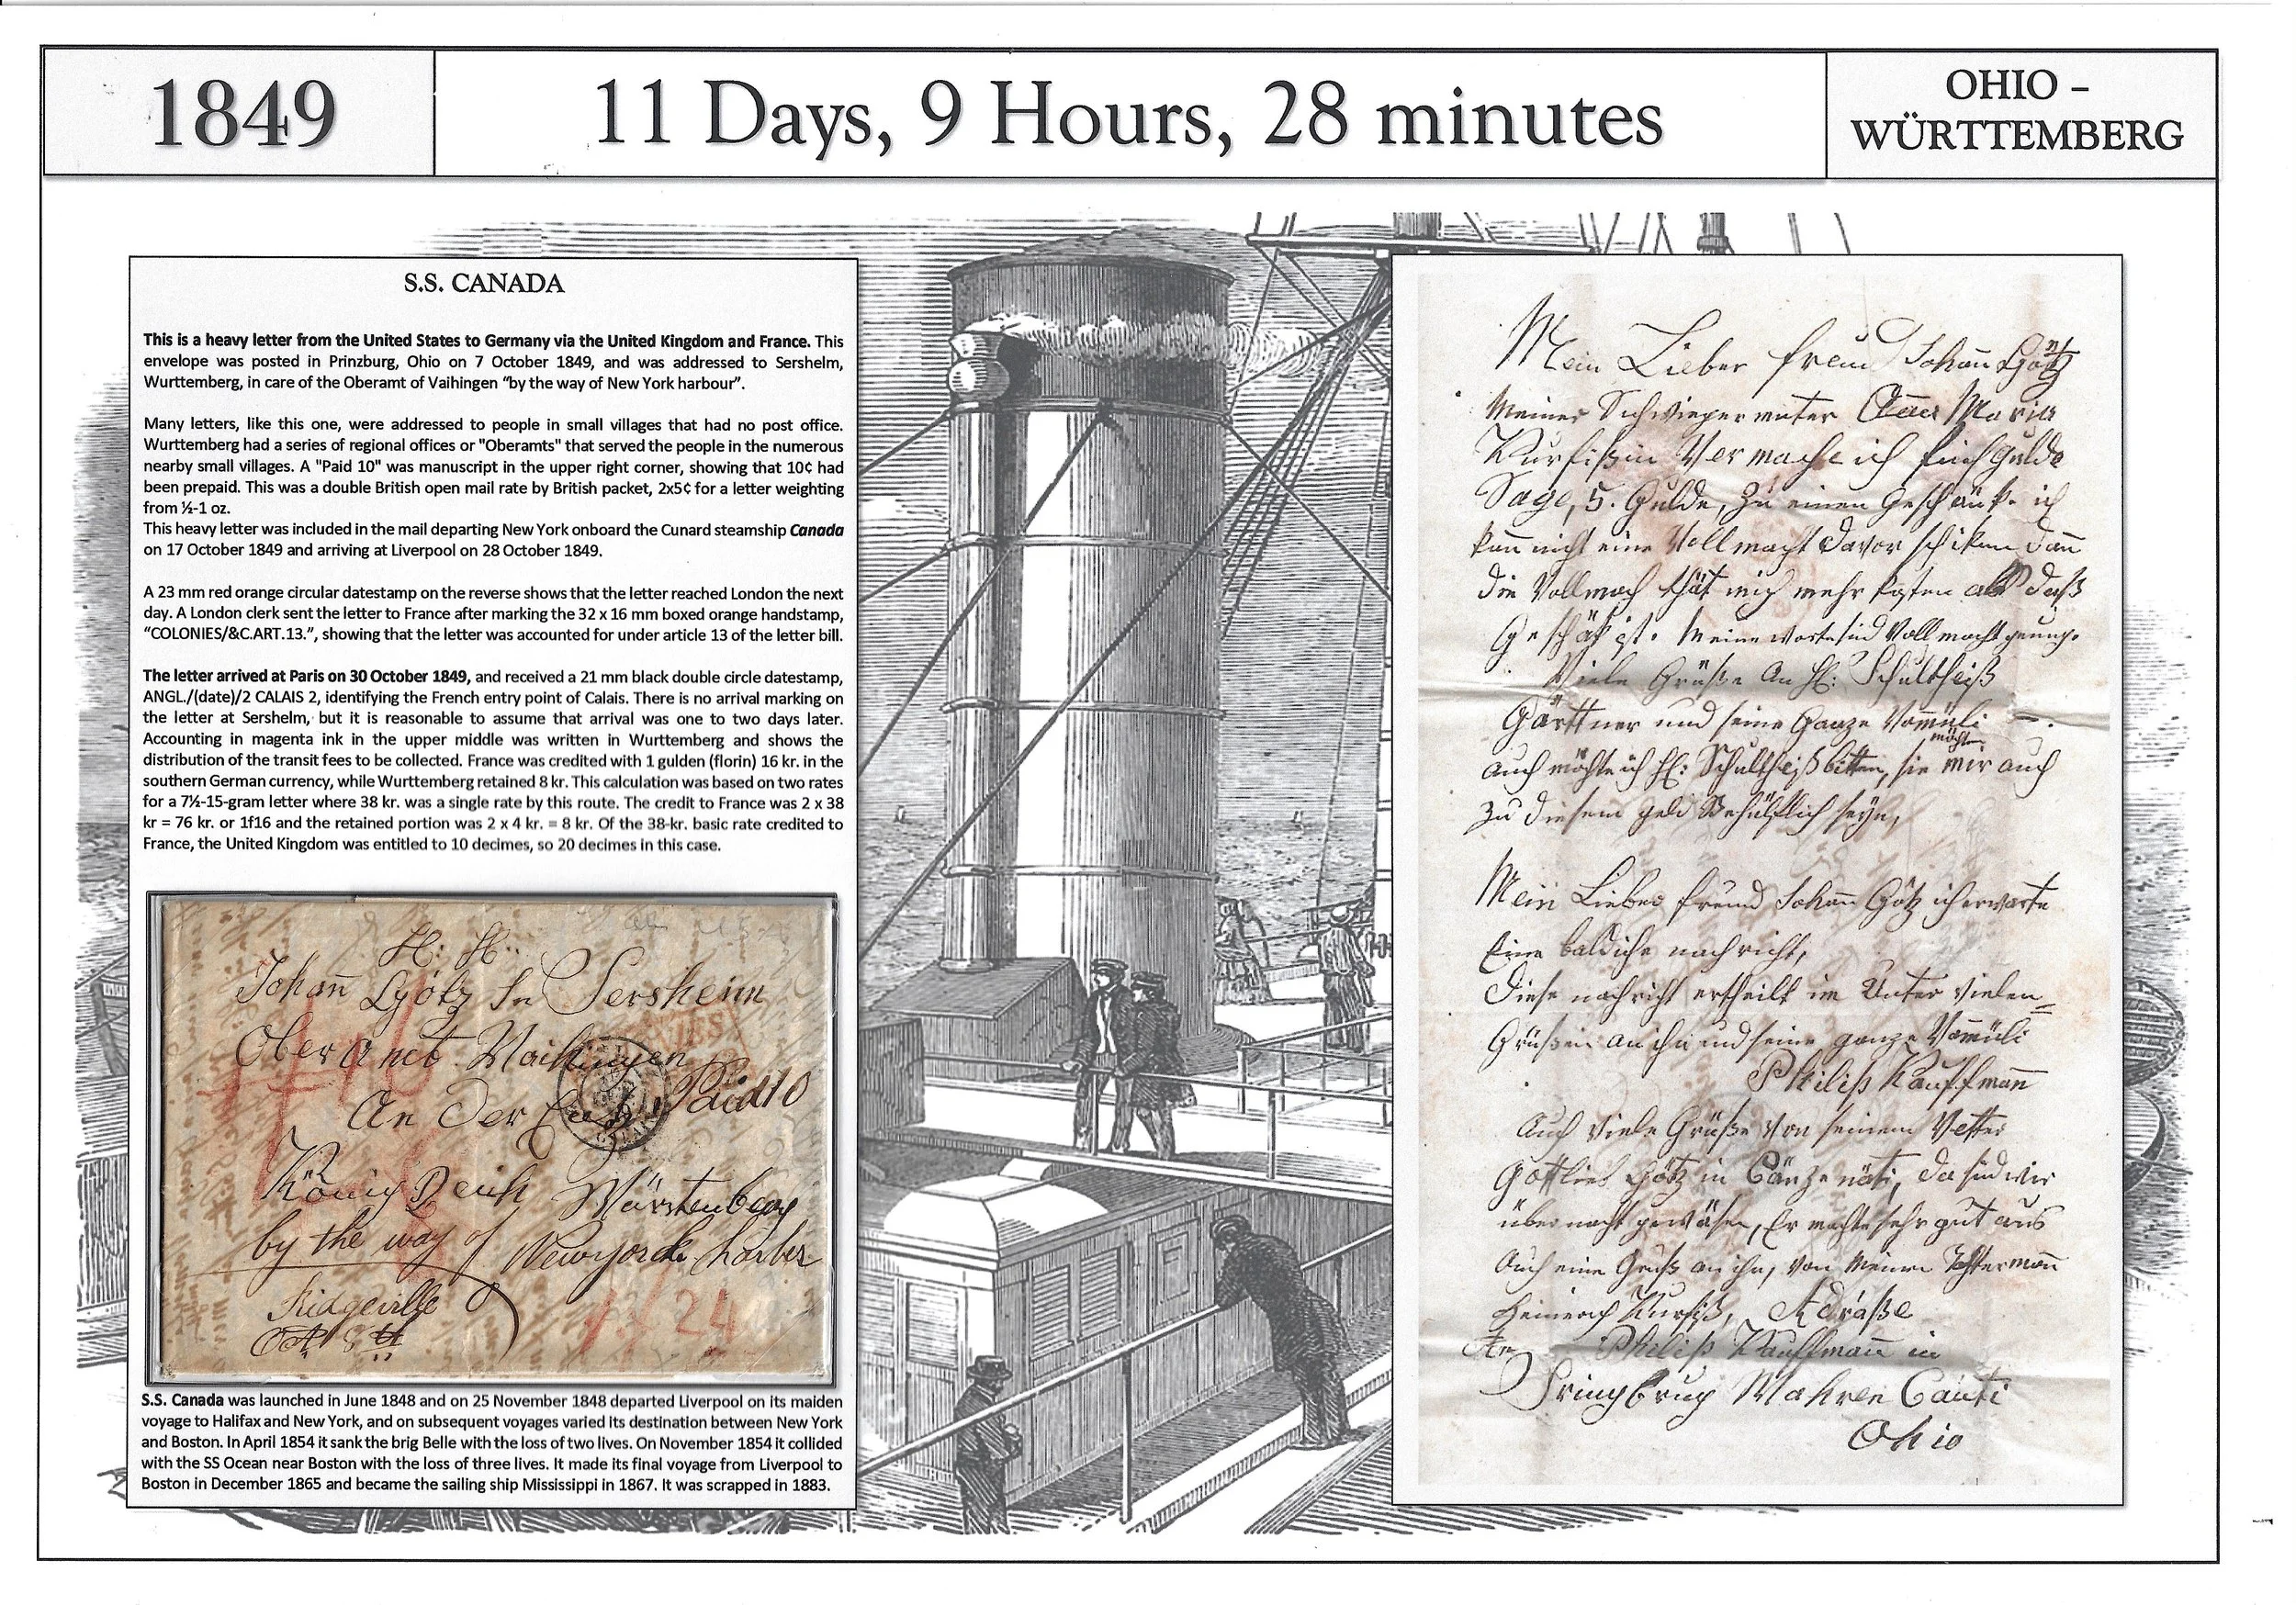 1849
11 Days, 9 Hours, 28 minutes
OHIO –
WÜRTTEMBERG
S.S. CANADA
This is a heavy letter from the United States to Germany via the United Kingdom and France. This
envelope was posted in Prinzburg, Ohio on 7 October 1849, and was addressed to Sershelm,
Wurttemberg, in care of the Oberamt of Vaihingen “by the way of New York harbour”.
Many letters, like this one, were addressed to people in small villages that had no post office.
Wurttemberg had a series of regional offices or "Oberamts" that served the people in the numerous
nearby small villages. A "Paid 10" was manuscript in the upper right corner, showing that 10¢ had
been prepaid. This was a double British open mail rate by British packet, 2x5¢ for a letter weighting
from ½-1 oz.
This heavy letter was included in the mail departing New York onboard the Cunard steamship Canada
on 17 October 1849 and arriving at Liverpool on 28 October 1849.
A 23 mm red orange circular datestamp on the reverse shows that the letter reached London the next
day. A London clerk sent the letter to France after marking the 32 x 16 mm boxed orange handstamp,
“COLONIES/&C.ART.13.”, showing that the letter was accounted for under article 13 of the letter bill.
The letter arrived at Paris on 30 October 1849, and received a 21 mm black double circle datestamp,
ANGL./(date)/2 CALAIS 2, identifying the French entry point of Calais. There is no arrival marking on
the letter at Sershelm, but it is reasonable to assume that arrival was one to two days later.
Accounting in magenta ink in the upper middle was written in Wurttemberg and shows the
distribution of the transit fees to be collected. France was credited with 1 gulden (florin) 16 kr. in the
southern German currency, while Wurttemberg retained 8 kr. This calculation was based on two rates
for a 7½-15-gram letter where 38 kr. was a single rate by this route. The credit to France was 2 x 38
kr = 76 kr. or 1f16 and the retained portion was 2 x 4 kr. = 8 kr. Of the 38-kr. basic rate credited to
France, the United Kingdom was entitled to 10 decimes, so 20 decimes in this case.
H: H:
Johan̄ Götz In Sersheim
Oberamt Maihingen
An Der
Paid 10
König Reich Würstenberg
by the way of Newyorck harber
Ridgeville
Oct 8th
1f 24
S.S. Canada was launched in June 1848 and on 25 November 1848 departed Liverpool on its maiden
voyage to Halifax and New York, and on subsequent voyages varied its destination between New York
and Boston. In April 1854 it sank the brig Belle with the loss of two lives. On November 1854 it collided
with the SS Ocean near Boston with the loss of three lives. It made its final voyage from Liverpool to
Boston in December 1865 and became the sailing ship Mississippi in 1867. It was scrapped in 1883.
Mein Lieber freund Johan̄ Götz
Meiner Schwiegermuter Maria
Kurfißin Vermache ich fünf Gulde
Sage, 5. Gulde, Zu einen Geschänke ich
kan̄ nicht eine Vollmacht davor schiken dan̄
die Vollmach thät mich mehr kosten als daß
Geschäk ist. Meine worte sind Vollmacht genung.
Viele Grüße An H: Schultheiß
Gärttner und seine Ganze Vammüli
auch möchte ich H: Schultheiß bitten, sie möchte mir auch
zu diesem geld Behülflich seyn,
Mein Lieber freund Johan̄ Götz ich erwarte
Eine baldiche nachricht,
Diese nachricht ertheilt im Unter vielen
Grüßen an ihn und seine ganze Vammüli
Philiß Kauffman̄
Auch Viele Grüße von seinem Vetter
Gottlieb Götz in Cänzenäti, da sind wir
über nacht gewäsen, Er machte sehr gut aus
Auch eine Gruß an ihn, von Meinen Tochterman̄
Heinrich Kurfiß, Adräße
An Philiß Kauffman̄ in
Cauti
Ohio